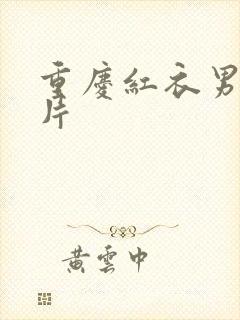 重慶紅衣男
片
黃雲中